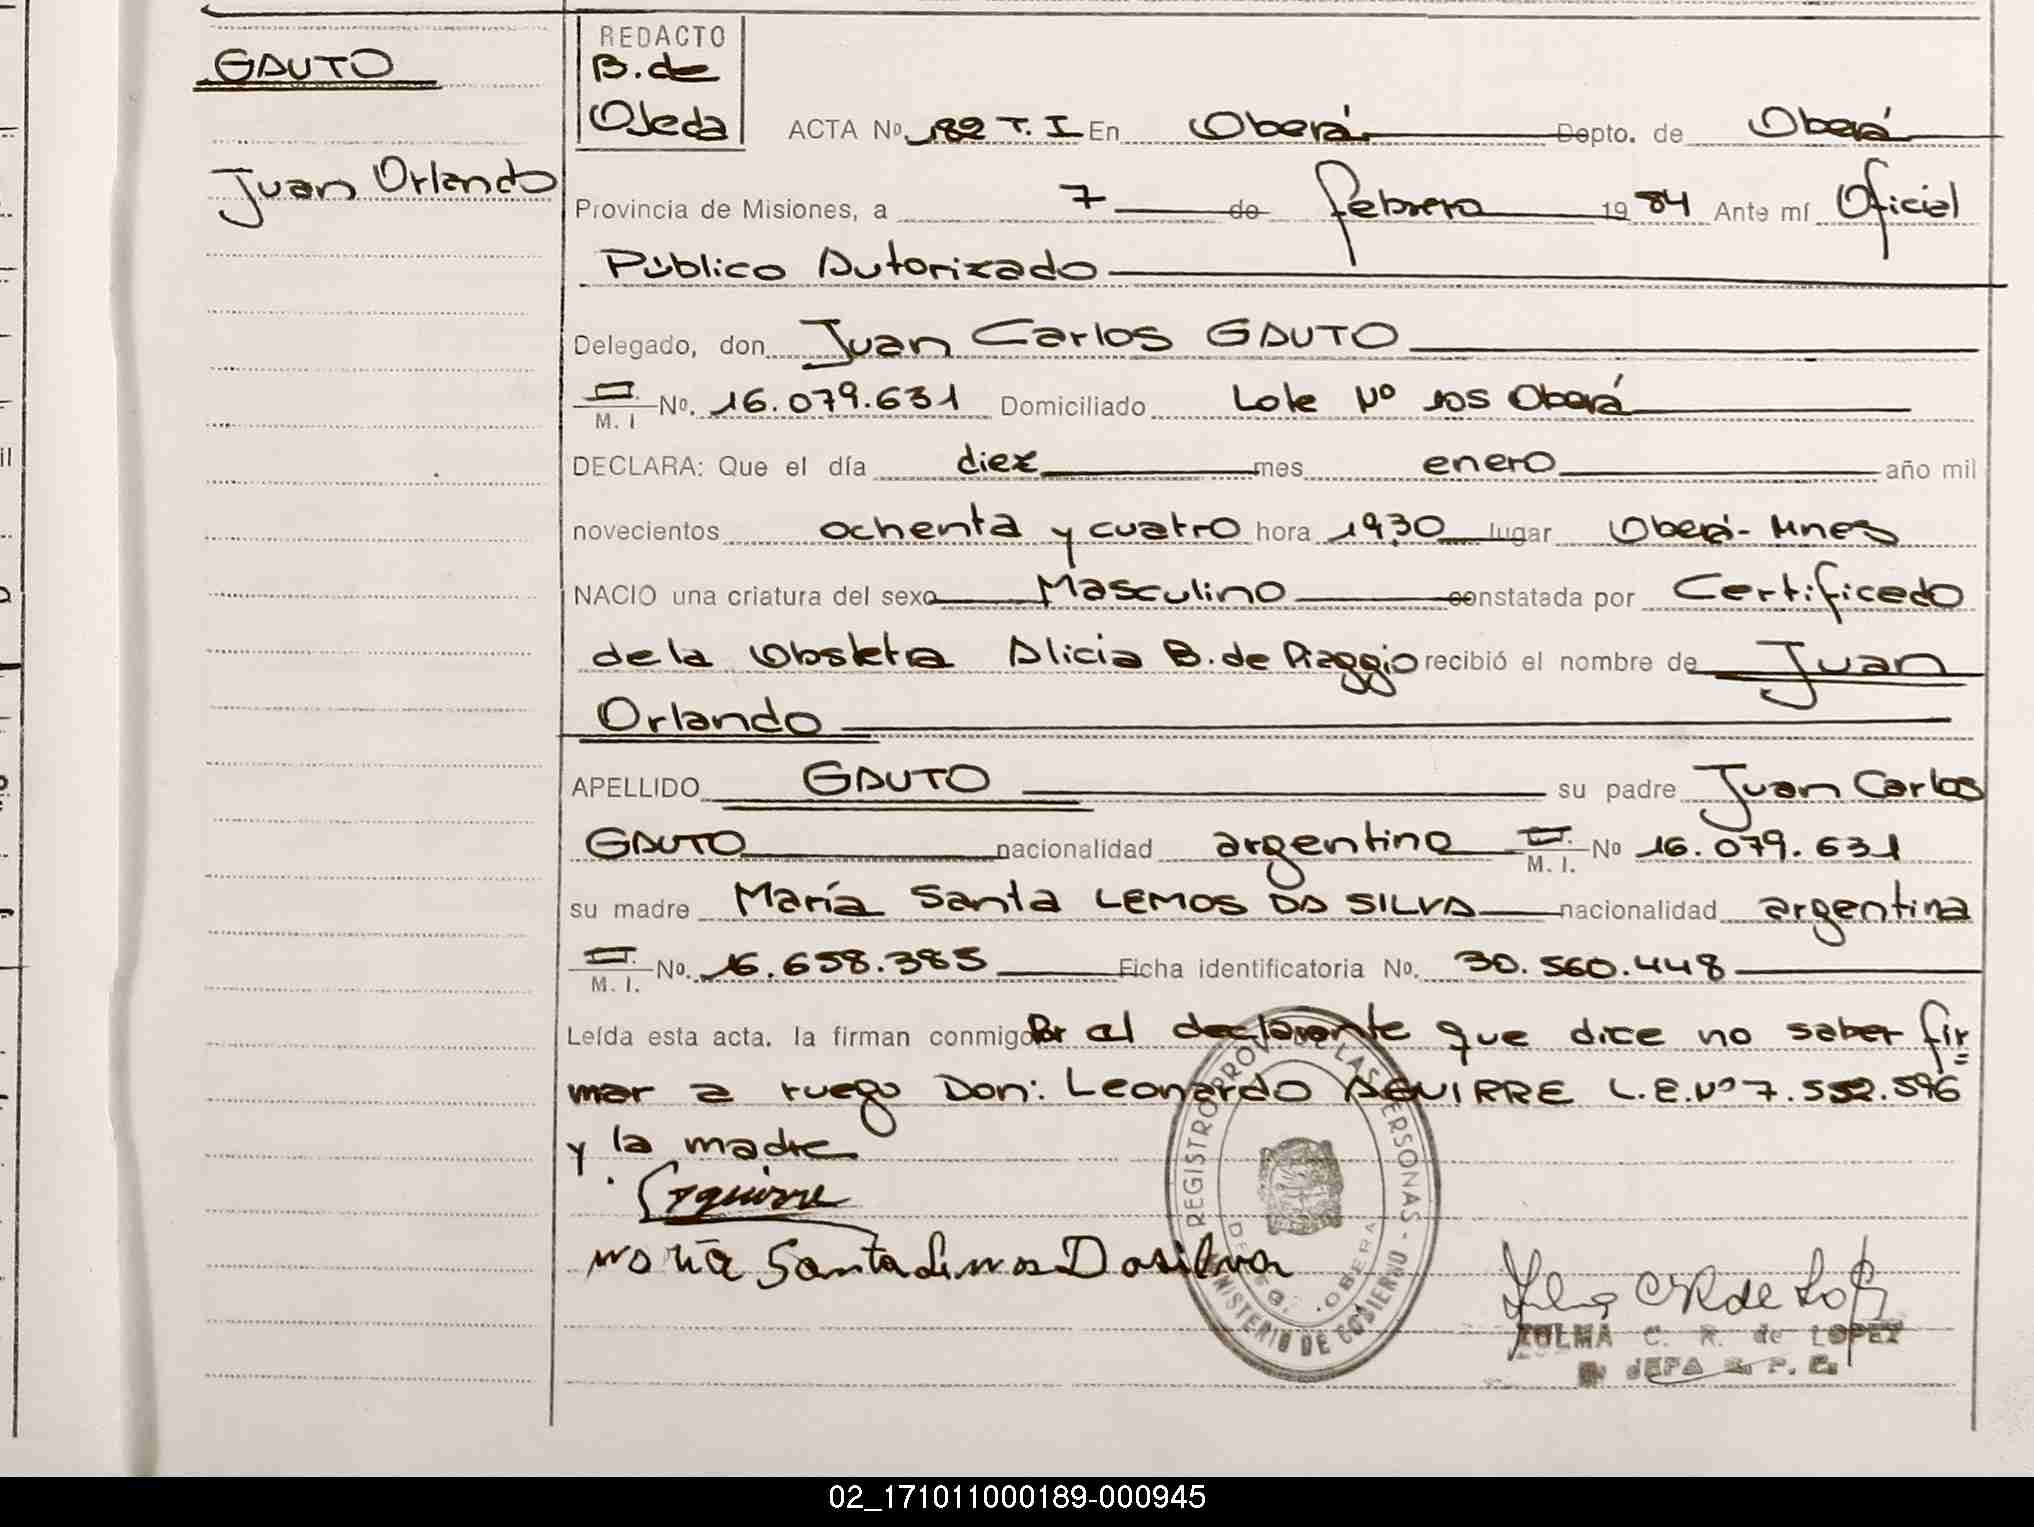 GAUTO
Juan Orlando
REDACTO
B. de
Ojeda
ACTA Nº 182 T. I En Oberá Depto. de Oberá
Provincia de Misiones, a 7 de febrero 1984 Ante mí Oficial
Público Autorizado
Delegado, don Juan Carlos GAUTO
M. I No. 16.079.631 Domiciliado Lote Nº 105 Oberá
DECLARA: Que el día diez mes enero año mil
novecientos ochenta y cuatro hora 19,30 lugar Oberá - Mnes
NACIO una criatura del sexo Masculino constatada por Certificado
de la Obstetra Alicia B. de Piaggio recibió el nombre de Juan
Orlando
APELLIDO GAUTO su padre Juan Carlos
GAUTO nacionalidad argentino M. I. Nº 16.079.631
su madre María Santa LEMOS DA SILVA nacionalidad argentina
M. I. No. 16.658.385 Ficha identificatoria No. 30.560.448
Leída esta acta. la firman conmigo Por el declarante que dice no saber fir=
mar a ruego Don: Leonardo AGUIRRE L.E. Nº 7.552.596
y la madre
Aguirre
Maria Santa Lemos Da silva
REGISTRO PROV. DE LAS PERSONAS - MINISTERIO DE GOBIERNO
DELEG. OBERA
ZULMA C. R. de LOPEZ
JEFA R. P. C.
02_171011000189-000945